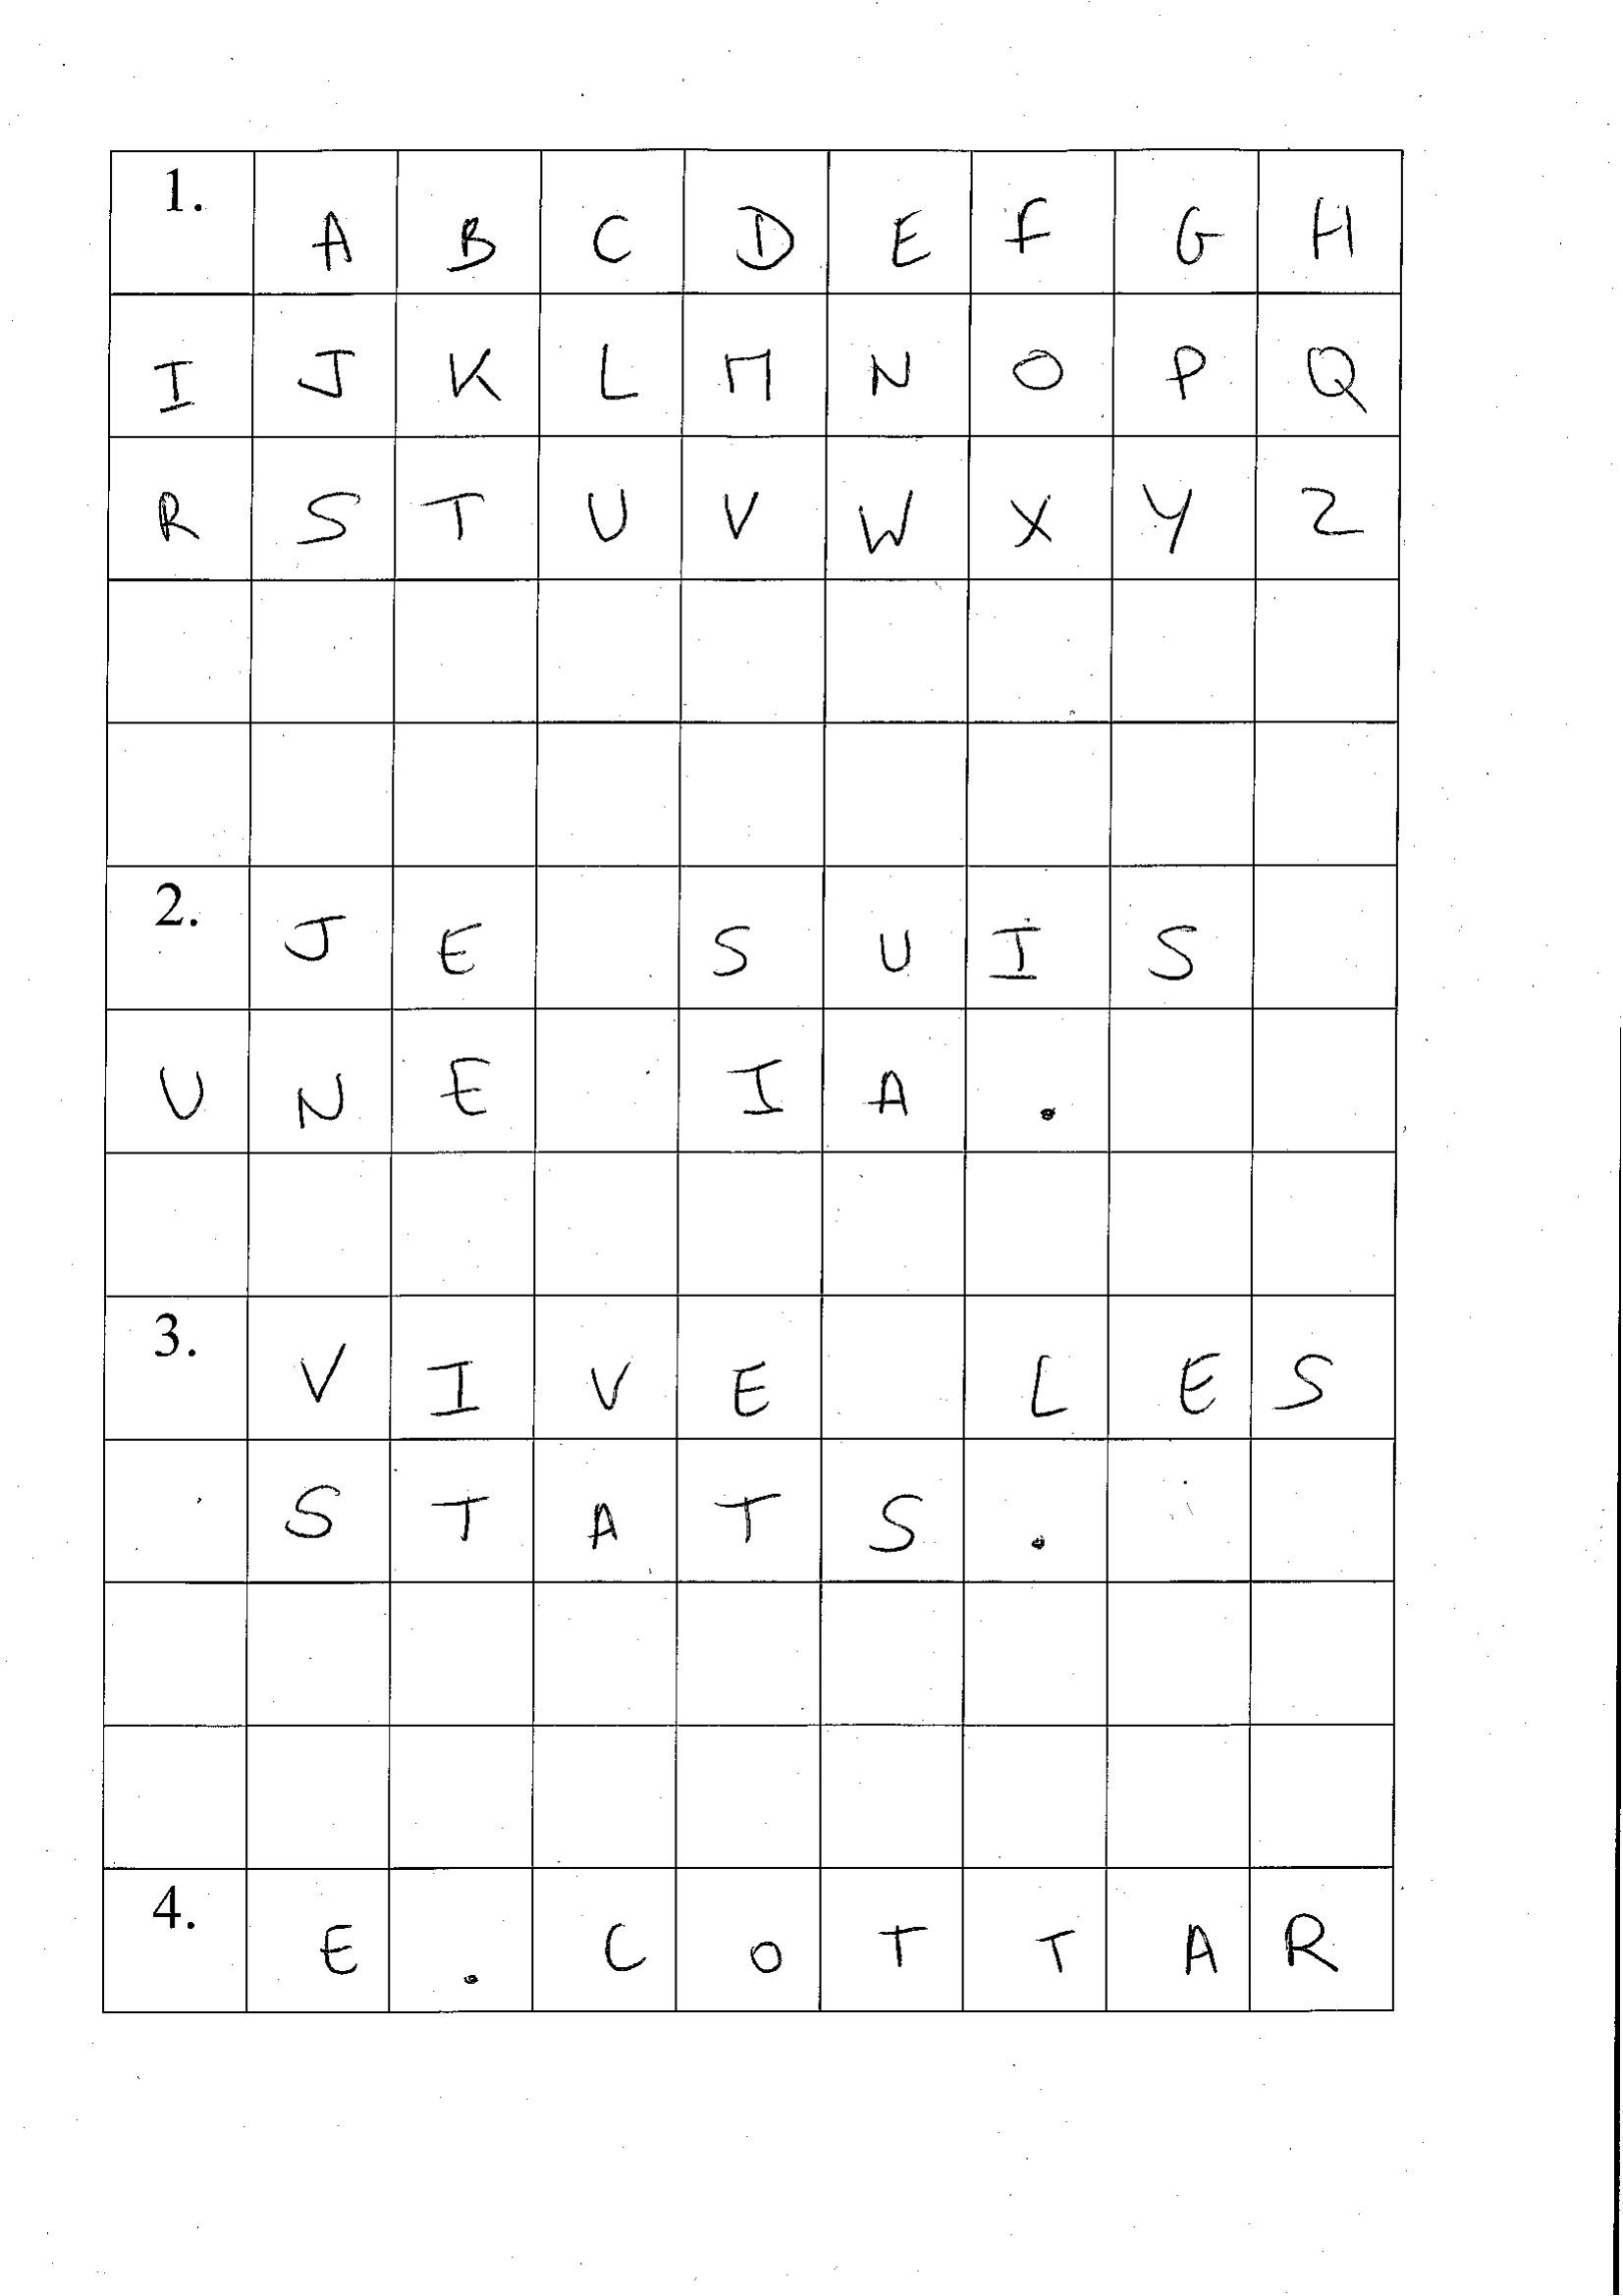 1. A B C D E F G H
I J K L M N O P Q
R S T U V W X Y Z
2. J E S U I S
U N E I A .
3. V I V E L E S
S T A T S .
4. E . C O T T A R